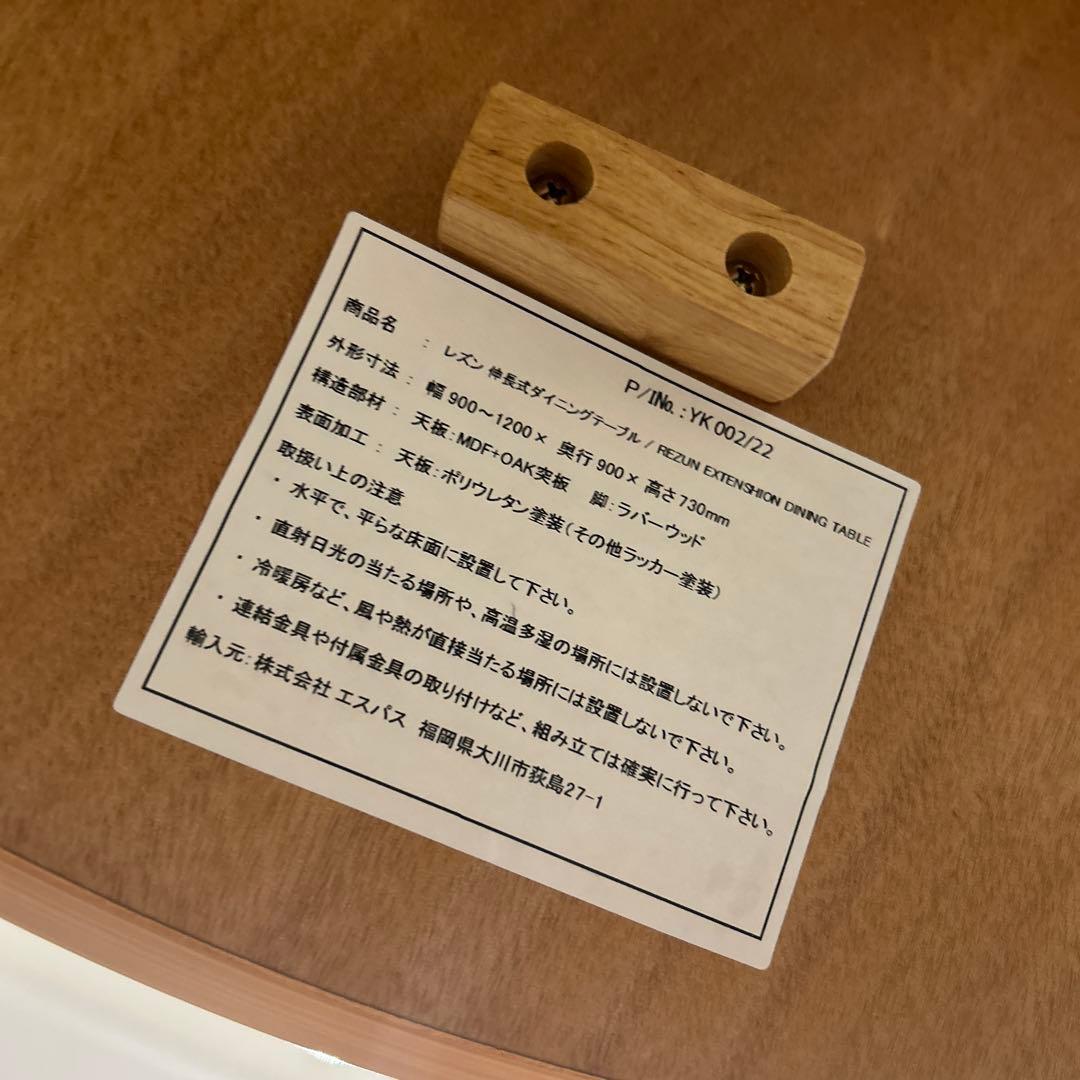 P/INo. : YK 002/22
商品名 : レズン 伸長式ダイニングテーブル / REZUN EXTENSHION DINING TABLE
外形寸法 : 幅 900～1200× 奥行 900× 高さ 730mm
構造部材 : 天板：MDF+OAK突板 脚：ラバーウッド
表面加工 : 天板：ポリウレタン塗装（その他ラッカー塗装）
取扱い上の注意
・ 水平で、平らな床面に設置して下さい。
・ 直射日光の当たる場所や、高温多湿の場所には設置しないで下さい。
・ 冷暖房など、風や熱が直接当たる場所には設置しないで下さい。
・ 連結金具や付属金具の取り付けなど、組み立ては確実に行って下さい。
輸入元：株式会社 エスパス 福岡県大川市荻島27-1